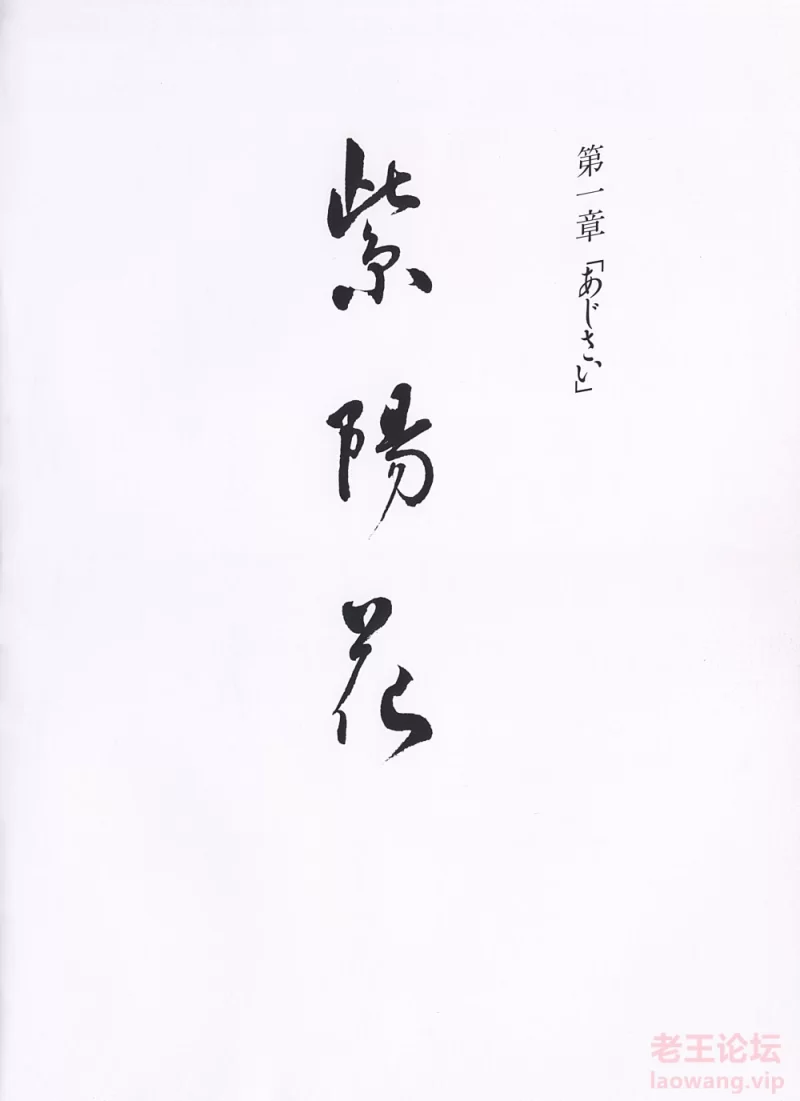 第一章「あじさい」
紫陽花
老王论坛
laowang.vip